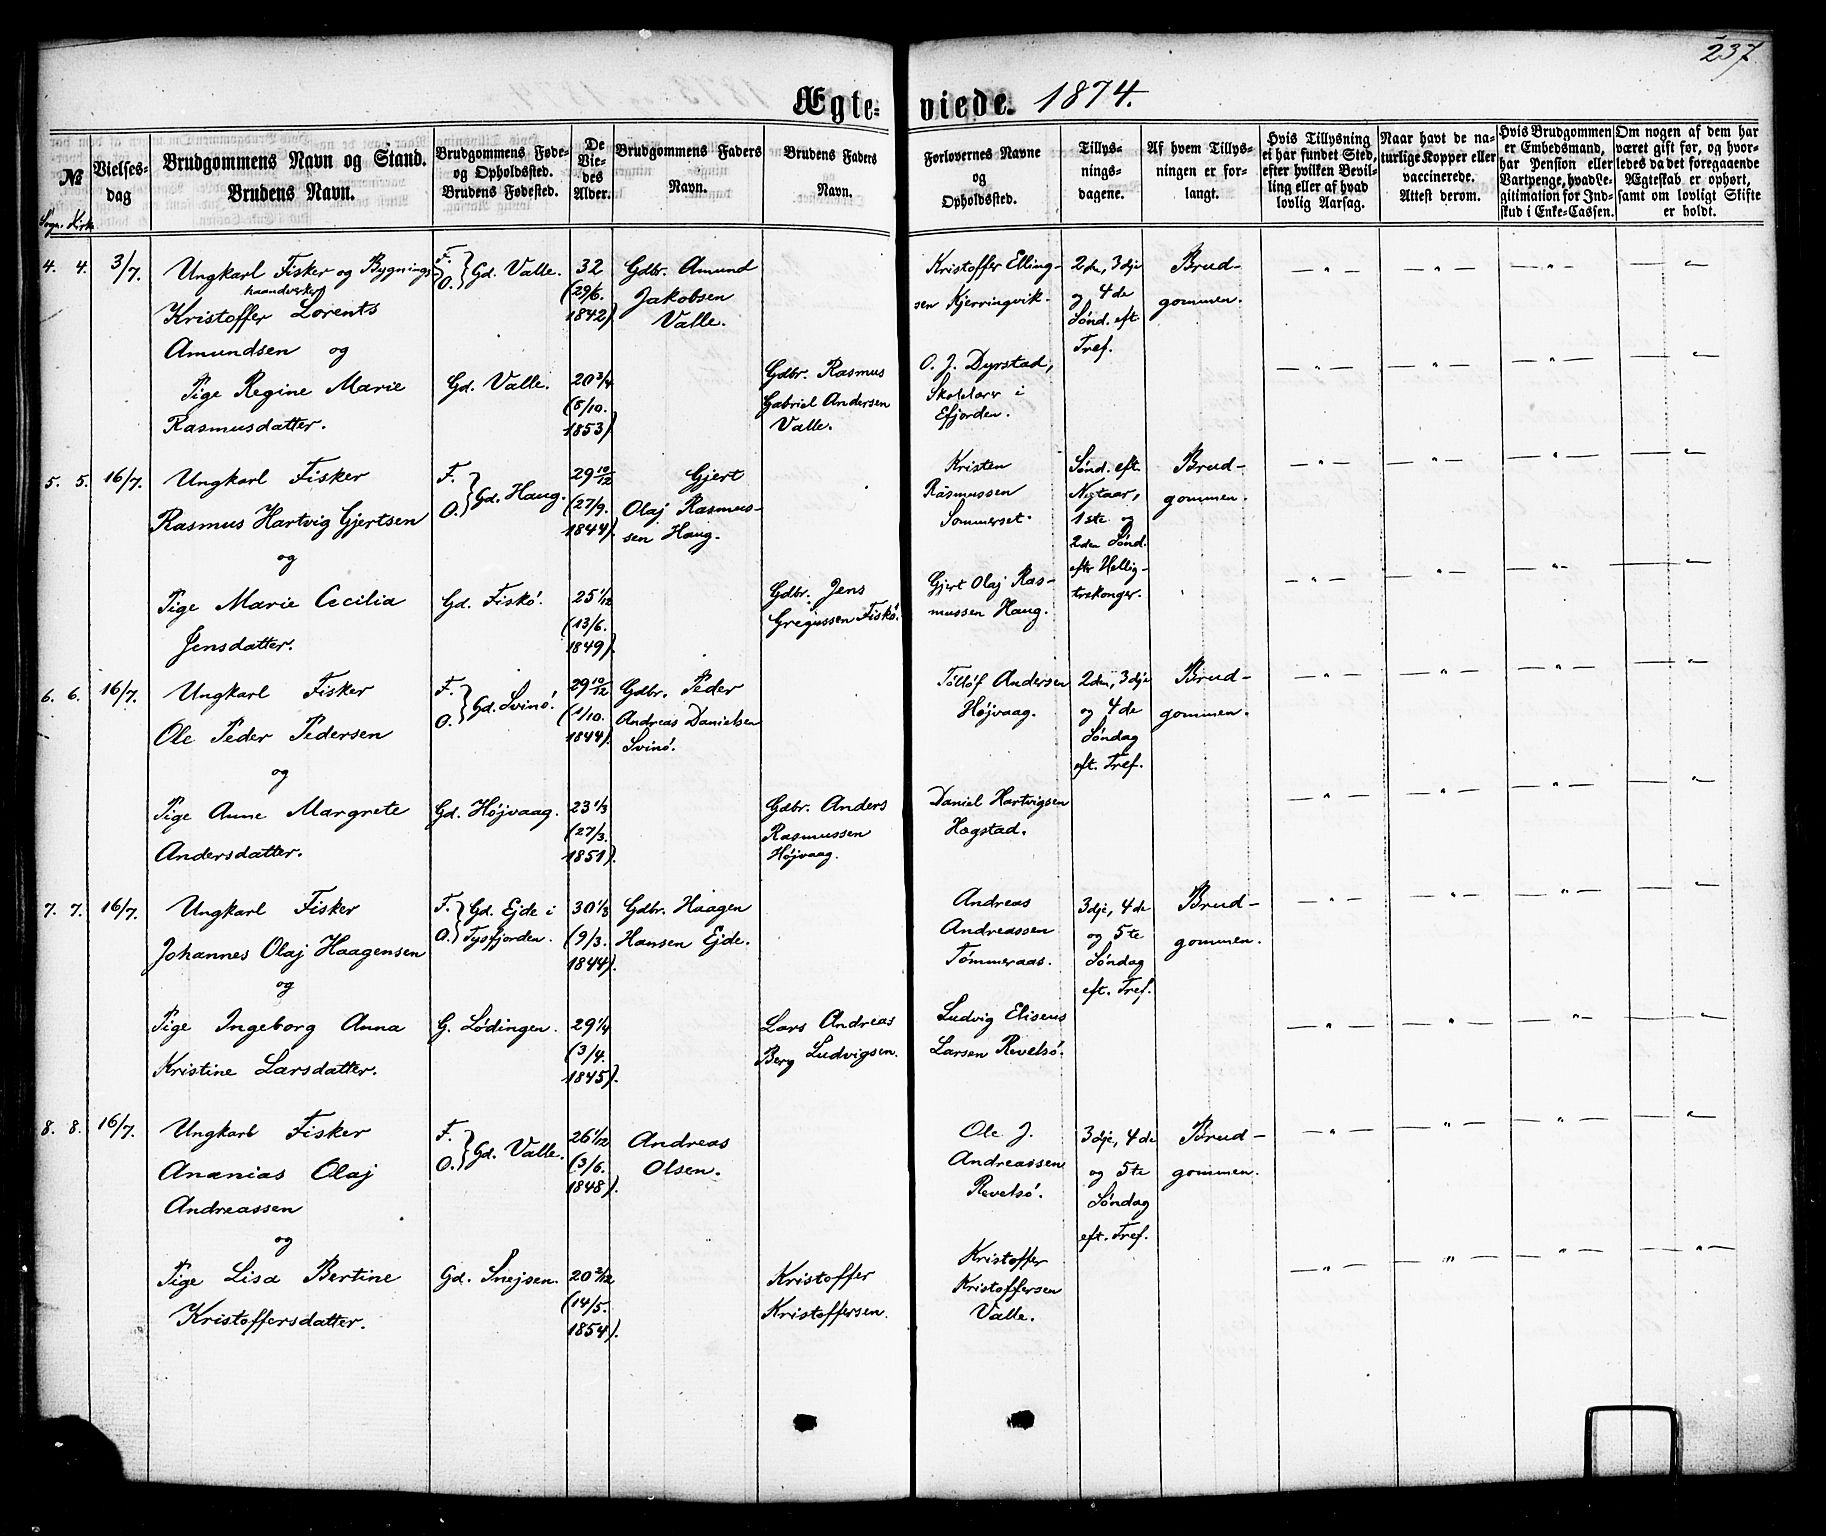 237
Ægte-viede. 1874.
№
Sogn. Kirk.
Vielses-
dag
Brudgommens Navn og Stand.
Brudens Navn.
Brudgommens Føde-
og Opholdssted.
Brudens Fødested.
De
Vie-
des
Alder.
Brudgommens Faders
Navn.
Brudens Faders
Navn.
Forlovernes Navne
og
Opholdssted.
Tillys-
nings-
dagene.
Af hvem Tillys-
ningen er for-
langt.
Hvis Tillysning
ei har fundet Sted,
efter hvilken Bevil-
ling eller af hvad
lovlig Aarsag.
Naar havt de na-
turlige Kopper eller
vaccinerede.
Attest derom.
Hvis Brudgommen
er Embedsmand,
har Pension eller
Vartpenge, hvad Le-
gitimation for Ind-
skud i Enke-Cassen.
Om nogen af dem har
været gift før, og hvor-
ledes da det foregaaende
Ægteskab er ophørt,
samt om lovligt Skifte
er holdt.
4. 4. 3/7.
Ungkarl Fisker og Bygnings-
haandverker
Kristoffer Lorents
Amundsen og
Pige Regine Marie
Rasmusdatter.
F.
O. } Gd. Valle.
Gd. Valle.
32
(29/6.
1842).
20 3/4
(8/10.
1853).
Gdbr. Amund
Jakobsen
Valle.
Gdbr. Rasmus
Gabriel Andersen
Valle.
Kristoffer Elling-
sen Kjerringvik.
O. J. Dyrstad,
Skolelærer i
Efjorden.
2den, 3dje
og 4de
Sønd. eft.
Tref.
Brud-
gommen.
5. 5. 16/7.
Ungkarl Fisker
Rasmus Hartvig Gjertsen
og
Pige Marie Cecilia
Jensdatter.
F.
O. } Gd. Haug.
Gd. Fiskö.
29 10/12
(27/9.
1844).
25 1/12
(13/6.
1849).
Gjert
Olaj Rasmus-
sen Haug.
Gdbr. Jens
Gregussen Fiskö.
Kristen
Rasmussen
Sommerset.
Gjert Olaj Ras-
mussen Haug.
Sønd. eft.
Nytaar,
1ste og
2den Sønd.
eftr Hellig-
trekonger.
Brud-
gommen.
6. 6. 16/7.
Ungkarl Fisker
Ole Peder Pedersen
og
Pige Anne Margrete
Andersdatter.
F.
O. } Gd. Svinö.
Gd. Højvaag.
29 10/12
(1/10.
1844).
23 1/3
(27/3.
1851).
Gdbr. Peder
Andreas Danielsen
Svinö.
Gdbr. Anders
Rasmussen
Højvaag.
Tölløf Andersen
Højvaag.
Daniel Hartvigsen
Hægstad.
2den, 3dje
og 4de
Søndag
eft. Tref.
Brud-
gommen.
7. 7. 16/7.
Ungkarl Fisker
Johannes Olaj Haagensen
og
Pige Ingeborg Anna
Kristine Larsdatter.
F.
O. } Gd. Ejde i
Tysfjorden.
G. Lödingen.
30 1/3
(9/3.
1844).
29 1/4
(3/4.
1845).
Gdbr. Haagen
Hansen Ejde.
Lars Andreas
Berg Ludvigsen.
Andreas
Andreassen
Tömmeraas.
Ludvig Eliseus
Larsen Revelsö.
3dje, 4de
og 5te
Søndag
eft. Tref.
Brud-
gommen.
8. 8. 16/7.
Ungkarl Fisker
Ananias Olaj
Andreassen
og
Pige Lisa Bertine
Kristoffersdatter.
F.
O. } Gd. Valle.
Gd. Snejsen.
26 1/12
(3/6.
1848).
20 2/12
(14/5.
1854).
Andreas
Olsen.
Kristoffer
Kristoffersen.
Ole J.
Andreassen
Revelsö.
Kristoffer
Kristoffersen
Valle.
3dje, 4de
og 5te
Søndag
eft. Tref.
Brud-
gommen.